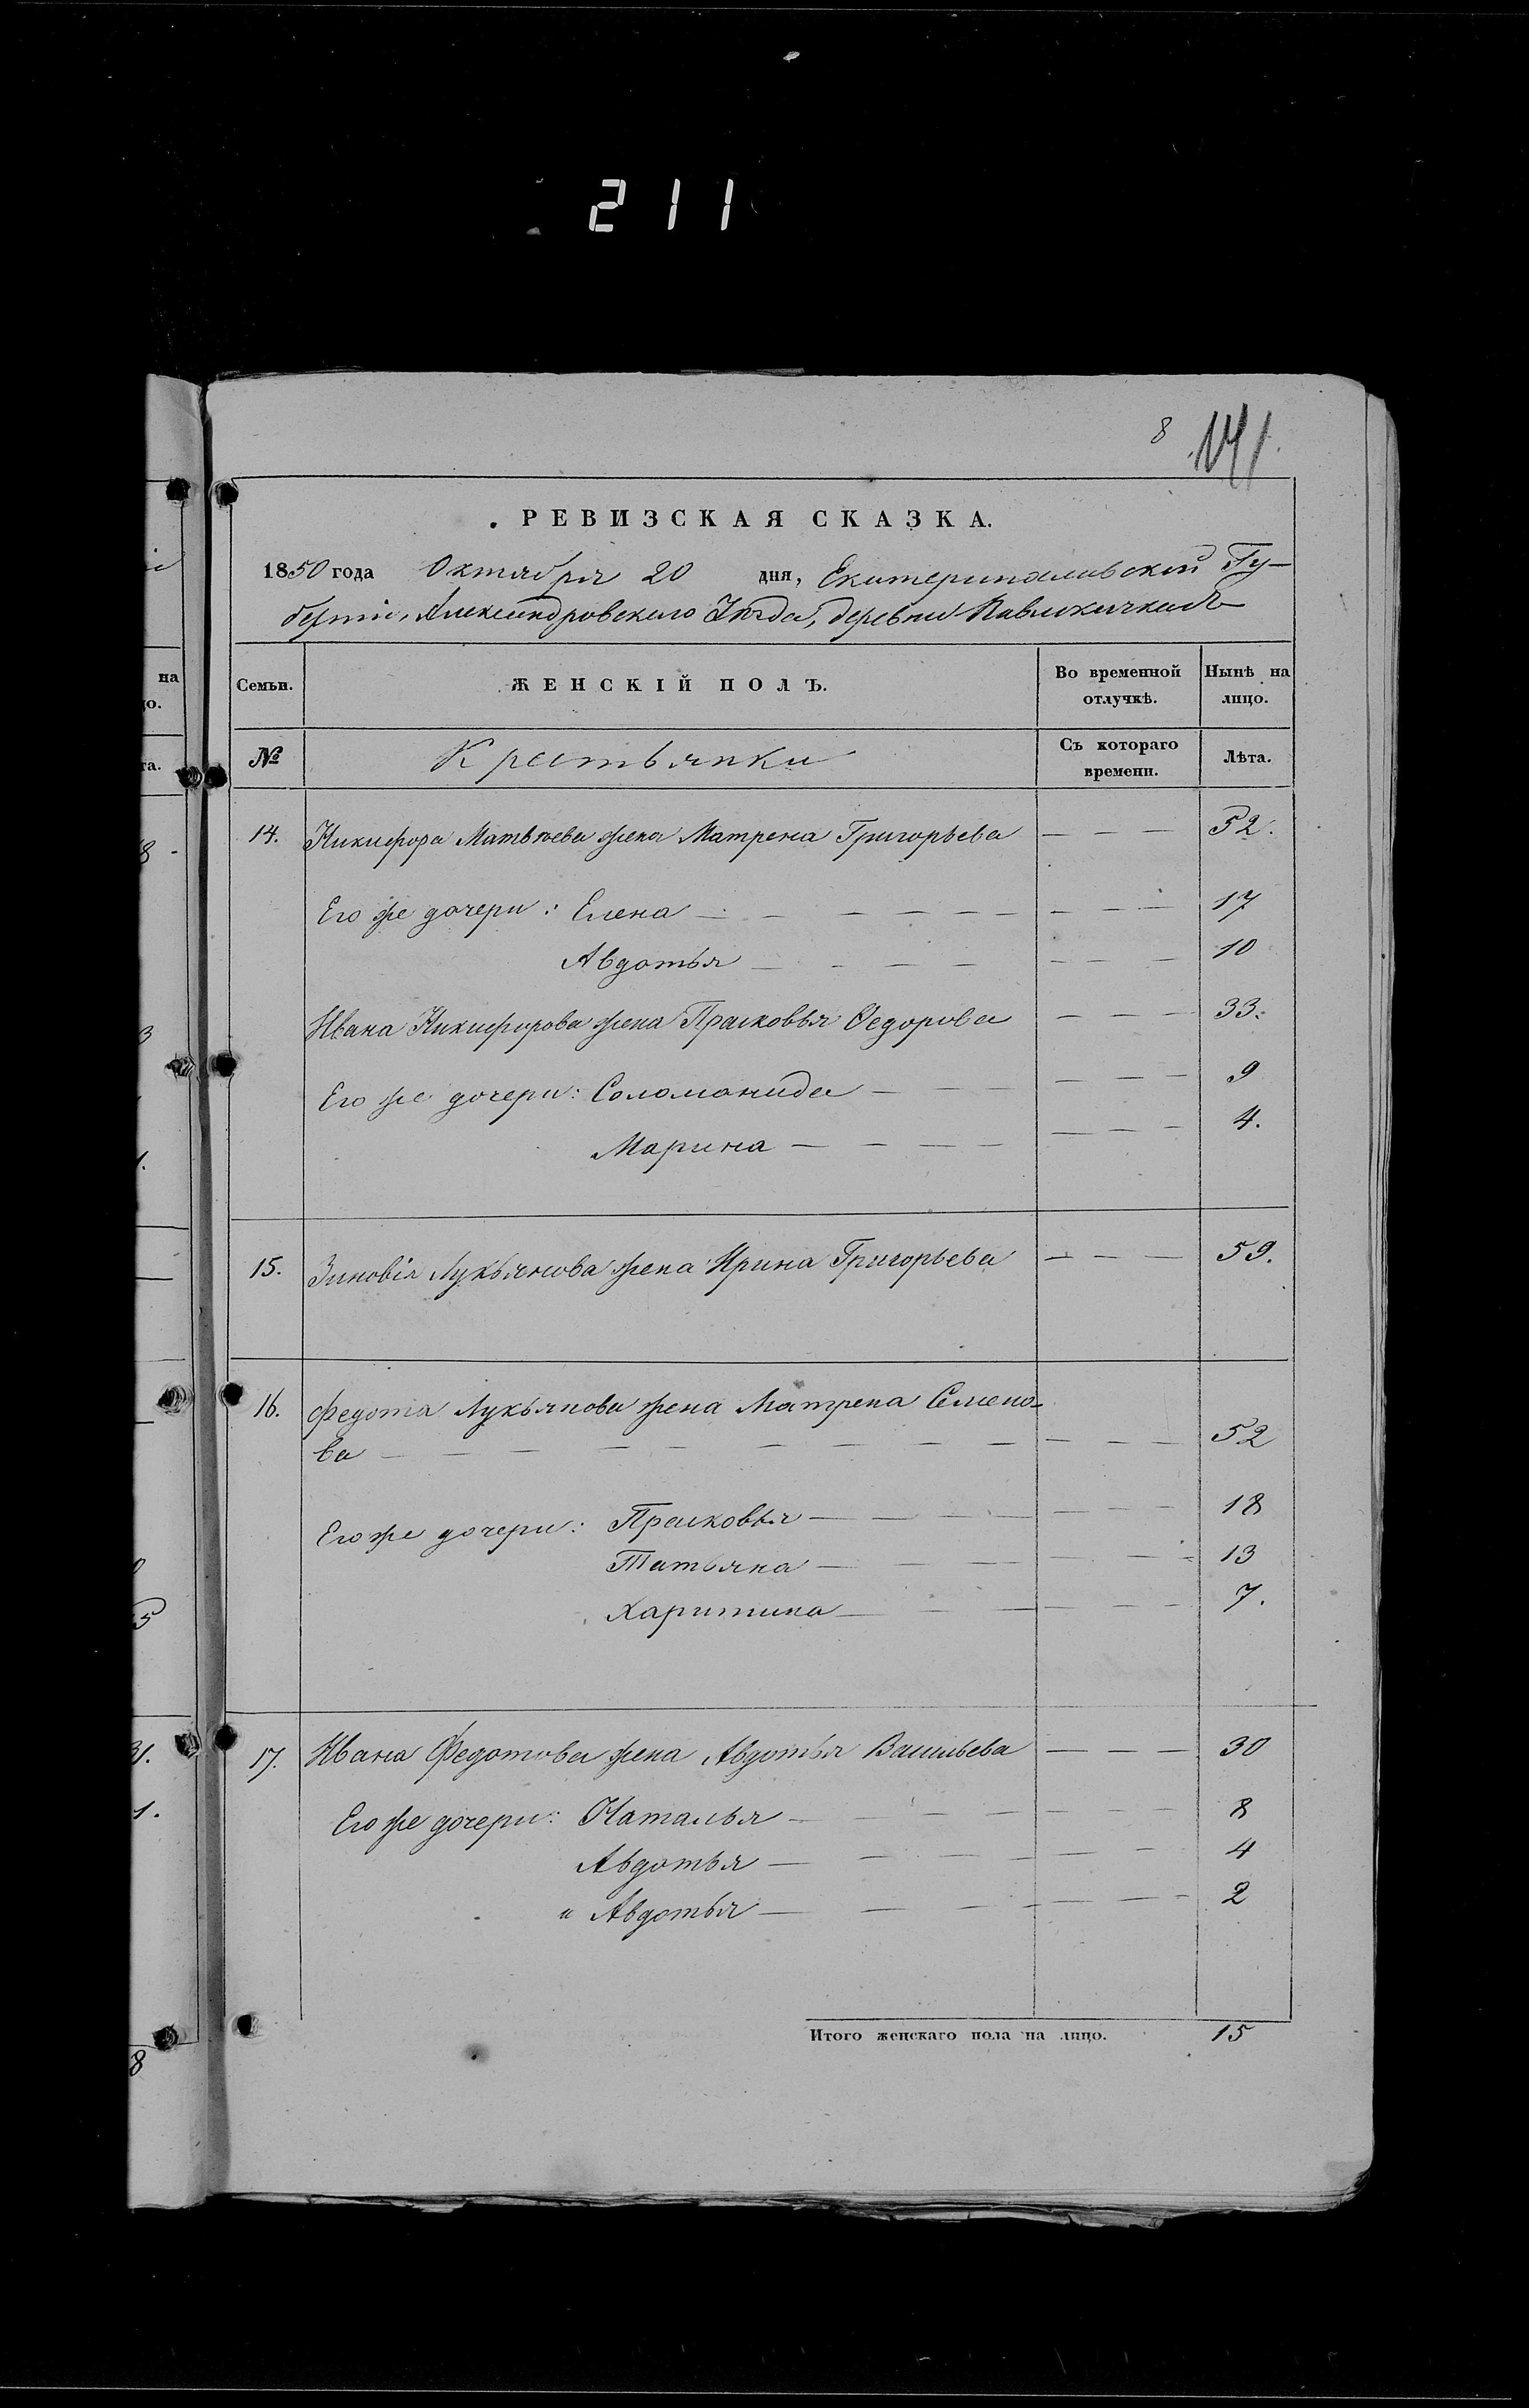 211
8 141.
РЕВИЗСКАЯ СКАЗКА.
1850 года Октября 20 дня, Екатеринославской Гу-
берніи, Александровскаго Уѣзда, деревни Павлокичкасъ
Семьи. ЖЕНСКІЙ ПОЛЪ. Во временной отлучкѣ. Нынѣ на лицо.
№ Крестьянки Съ котораго времени. Лѣта.
14. Никифора Матвѣева жена Матрена Григорьева — — — 52.
Его же дочери: Елена — — — — — — — — — 17
Авдотья — — — — — — — 10
Ивана Никифорова жена Прасковья Ѳедорова — — — 33.
Его же дочери: Соломонида — — — — — — 9
Марина — — — — — — — 4.
15. Зиновія Лукьянова жена Ирина Григорьева — — — 59.
16. Федота Лукьянова жена Матрена Семено-
ва — — — — — — — — — — — 52
Его же дочери: Прасковья — — — — — — — 18
Татьяна — — — — — 13
Харитина — — — — — — 7.
17. Ивана Федотова жена Авдотья Васильева — — — 30
Его же дочери: Наталья — — — — — — 8
Авдотья — — — — — — 4
и Авдотья — — — — — — — 2
Итого женскаго пола на лицо. 15
на
цо.
та.
8
3
1.
5
31.
1.
8